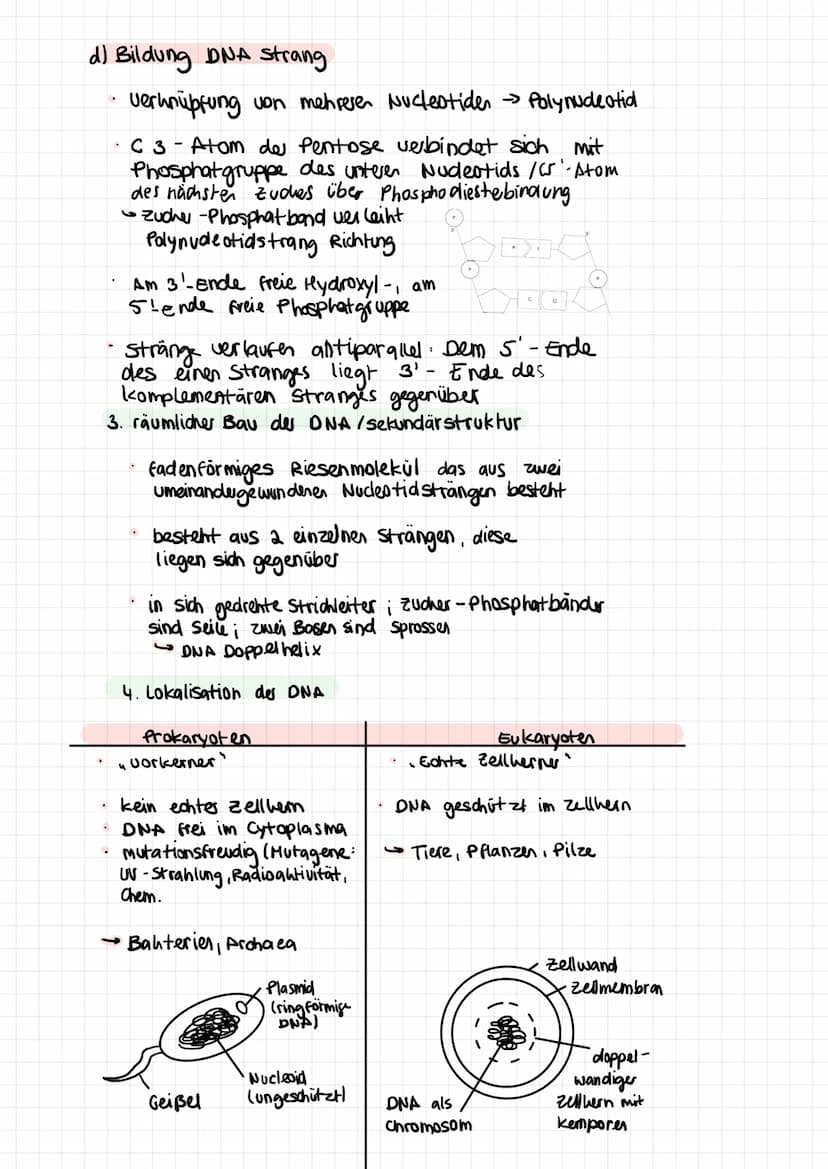 d) Bildung DNA Strang
· Verknüpfung von mehreren Nucleotiden → Polynucleotid
· C 3 - Atom der Pentose verbindet sich mit
Phosphatgruppe des unteren Nucleotids / C5'-Atom
des nächsten Zuckers über Phosphodiesterbindung
↳ Zucker-Phosphatband verleiht
Polynucleotidstrang Richtung
· Am 3'-Ende freie Hydroxyl-, am
5'-ende freie Phosphatgruppe
· Stränge verlaufen antiparallel. Dem 5' - Ende
des einen Stranges liegt 3' - Ende des
komplementären Stranges gegenüber
3. räumlicher Bau der DNA / sekundärstruktur
· fadenförmiges Riesenmolekül das aus zwei
umeinandergewundenen Nucleotidsträngen besteht
· besteht aus 2 einzelnen Strängen, diese
liegen sich gegenüber
· in sich gedrehte Strickleiter ; Zucker-Phosphatbänder
sind Seile ; zwei Basen sind Sprossen
↳ DNA Doppelhelix
4. Lokalisation der DNA
Prokaryoten
· „Vorkerner“
· kein echtes Zellkern
· DNA frei im Cytoplasma
· mutationsfreudig (Mutagene:
UV-Strahlung, Radioaktivität,
Chem.
→ Bakterien, Archaea
Plasmid
(ringförmige
DNA)
Nucleoid
(ungeschützt)
Geißel
Eukaryoten
· „Echte Zellkerner“
· DNA geschützt im Zellkern
↳ Tiere, Pflanzen, Pilze
Zellwand
Zellmembran
doppel-
wandiger
Zellkern mit
Kernporen
DNA als
Chromosom